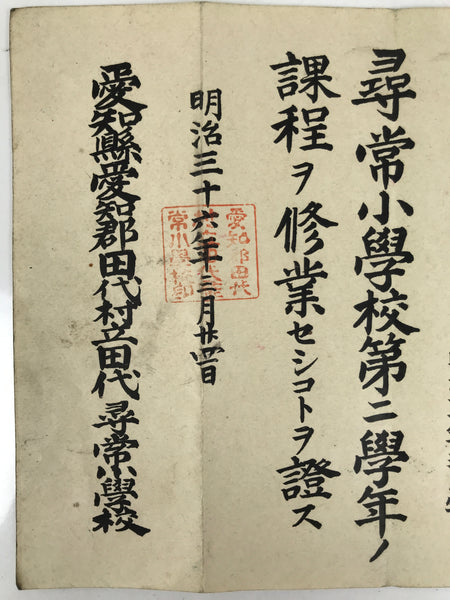 尋常小學校第二學年ノ
課程ヲ修業セシコトヲ證ス
明治三十六年三月廿四日
愛知縣愛知郡田代村立田代尋常小學校
愛知郡田代
常小學校印